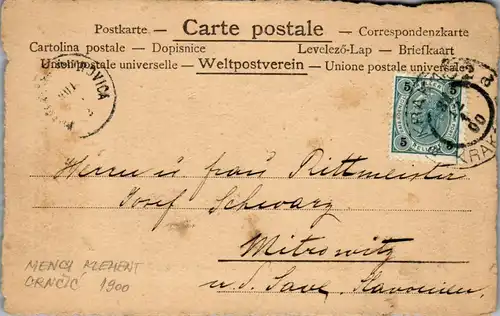 Postkarte — Carte postale — Correspondenzkarte
Cartolina postale — Dopisnice Levelező-Lap — Briefkaart
Union postale universelle — Weltpostverein — Unione postale universale
5 5
5 5
KRAK
00
Herrn u frau Rittmeister
Josef Schwarz
Mitrowitz
u. d. Save, Slavonien.
1900